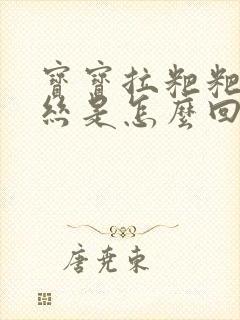 寶寶拉粑粑
絲是怎麼回
唐堯東